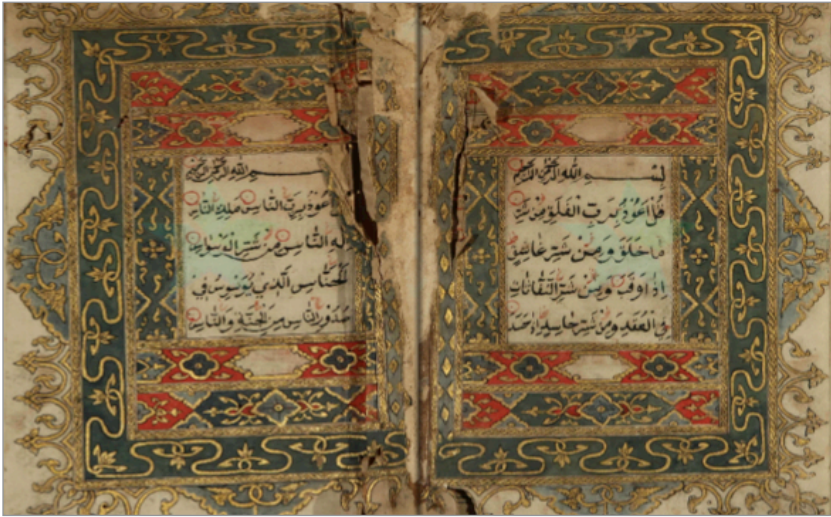 بِسْمِ اللهِ الرَّحْمٰنِ الرَّحِيْمِ
قُلْ اَعُوْذُ بِرَبِّ الْفَلَقِ مِنْ شَرِّ
مَا خَلَقَ وَمِنْ شَرِّ غَاسِقٍ
اِذَا وَقَبَ وَمِنْ شَرِّ النَّفّٰثٰتِ
فِى الْعُقَدِ وَمِنْ شَرِّ حَاسِدٍ اِذَا حَسَدَ
بِسْمِ اللهِ الرَّحْمٰنِ الرَّحِيْمِ
اَعُوْذُ بِرَبِّ النَّاسِ مَلِكِ النَّاسِ
لٰهِ النَّاسِ مِنْ شَرِّ الْوَسْوَاسِ
الْخَنَّاسِ الَّذِيْ يُوَسْوِسُ فِيْ
صُدُوْرِ النَّاسِ مِنَ الْجِنَّةِ وَالنَّاسِ